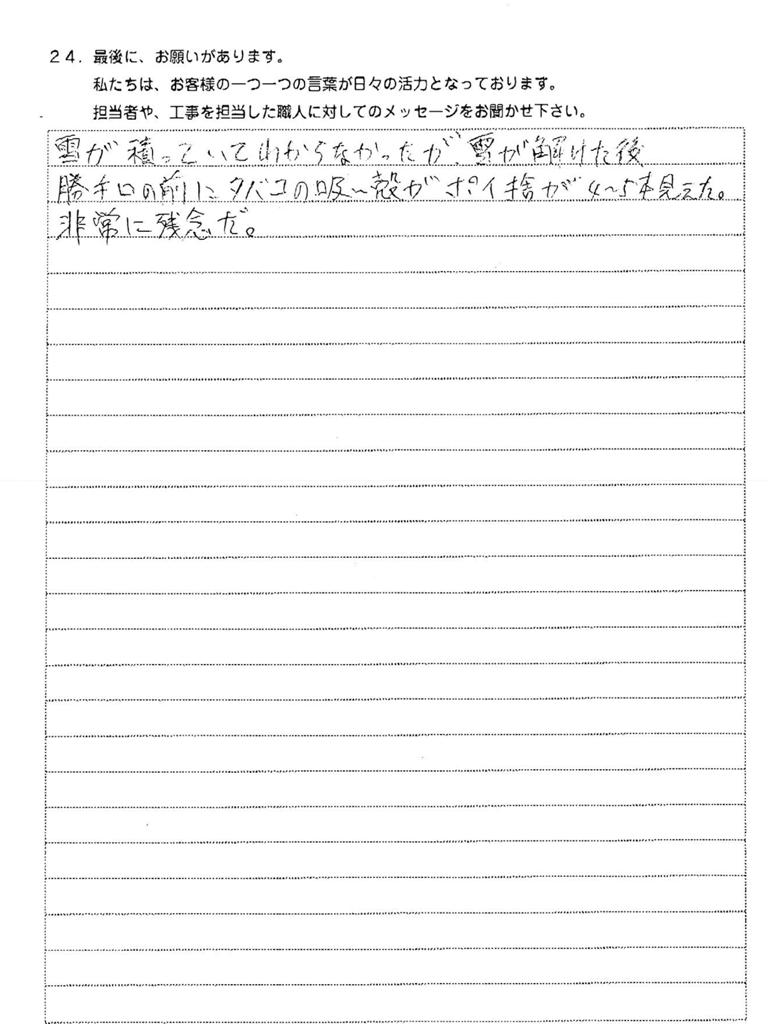 24. 最後に、お願いがあります。
私たちは、お客様の一つ一つの言葉が日々の活力となっております。
担当者や、工事を担当した職人に対してのメッセージをお聞かせ下さい。
雪が積っていてわからなかったが、雪が解けた後
勝手口の前にタバコの吸い殻がポイ捨が4~5本見えた。
非常に残念だ。